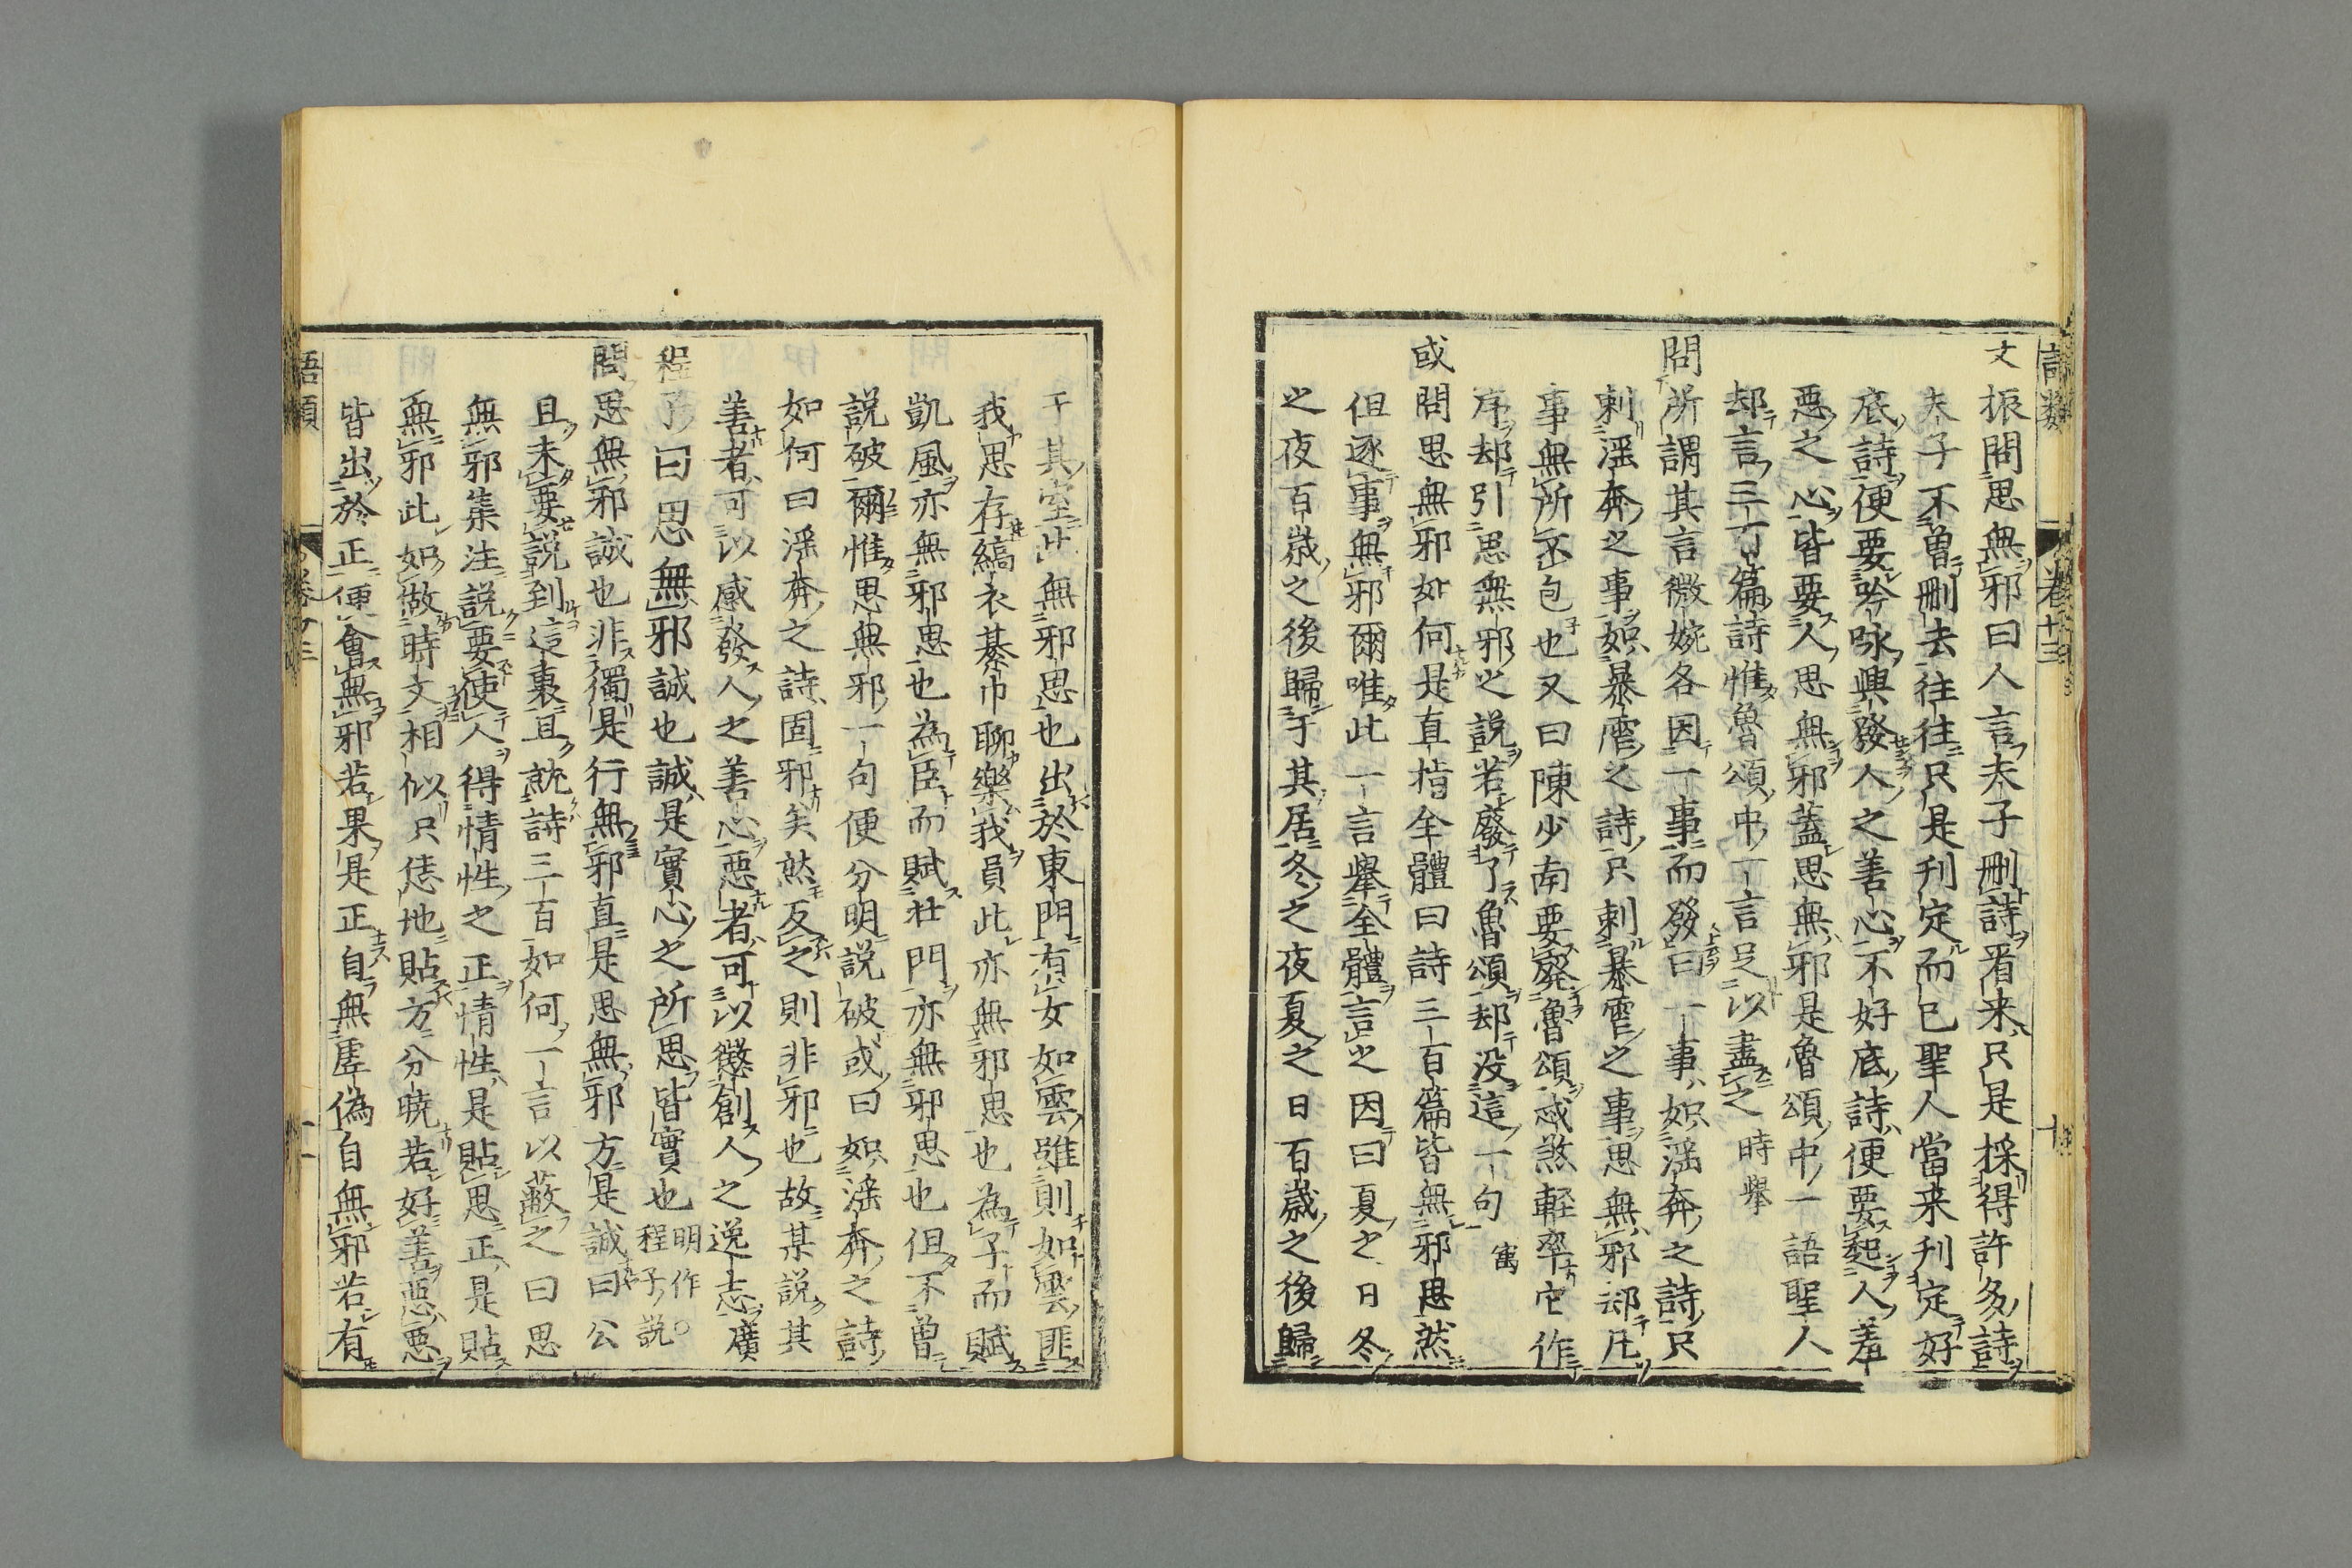 語類
卷廿三
十
文振問思無邪曰人言夫子刪詩看来只是採得許多詩
夫子不曽刪去往往只是刋定而已聖人當来刋定好
底詩便要吟咏興發人之善心不好底詩便要起人羞
惡之心皆要人思無邪蓋思無邪是魯頌中一語聖人
却言三百篇詩惟魯頌中一言足以盡之 時舉
問所謂其言微婉各因一事而發曰一事如滛奔之詩只
刺滛奔之事如暴虐之詩只刺暴虐之事思無邪却凡
事無所不包也又曰陳少南要廢魯頌忒煞輕率它作
序却引思無邪之說若廢了魯頌却没這一句 㝢
或問思無邪如何是直指全體曰詩三百篇皆無邪思然
但逐事無邪爾唯此一言舉全體言之因曰夏之日冬
之夜百歳之後歸于其居冬之夜夏之日百歳之後歸
于其室此無邪思也出於東門有女如雲雖則如雲匪
我思存縞衣綦巾聊樂我員此亦無邪思也為子而賦
凱風亦無邪思也為臣而賦北門亦無邪思也但不曽
說破爾惟思無邪一句便分明說破或曰如滛奔之詩
如何曰滛奔之詩固邪矣然反之則非邪也故某說其
善者可以感發人之善心惡者可以懲創人之逸志 廣
程子曰思無邪誠也誠是實心之所思皆實也 明作○
程子說
問思無邪誠也非獨是行無邪直是思無邪方是誠曰公
且未要說到這裏且就詩三百如何一言以蔽之曰思
無邪集注說要使人得情性之正情性是貼思正是貼
無邪此如做時文相似只恁地貼方分曉若好善惡惡
皆出於正便會無邪若果是正自無虛偽自無邪若有
語類
卷廿三
十一